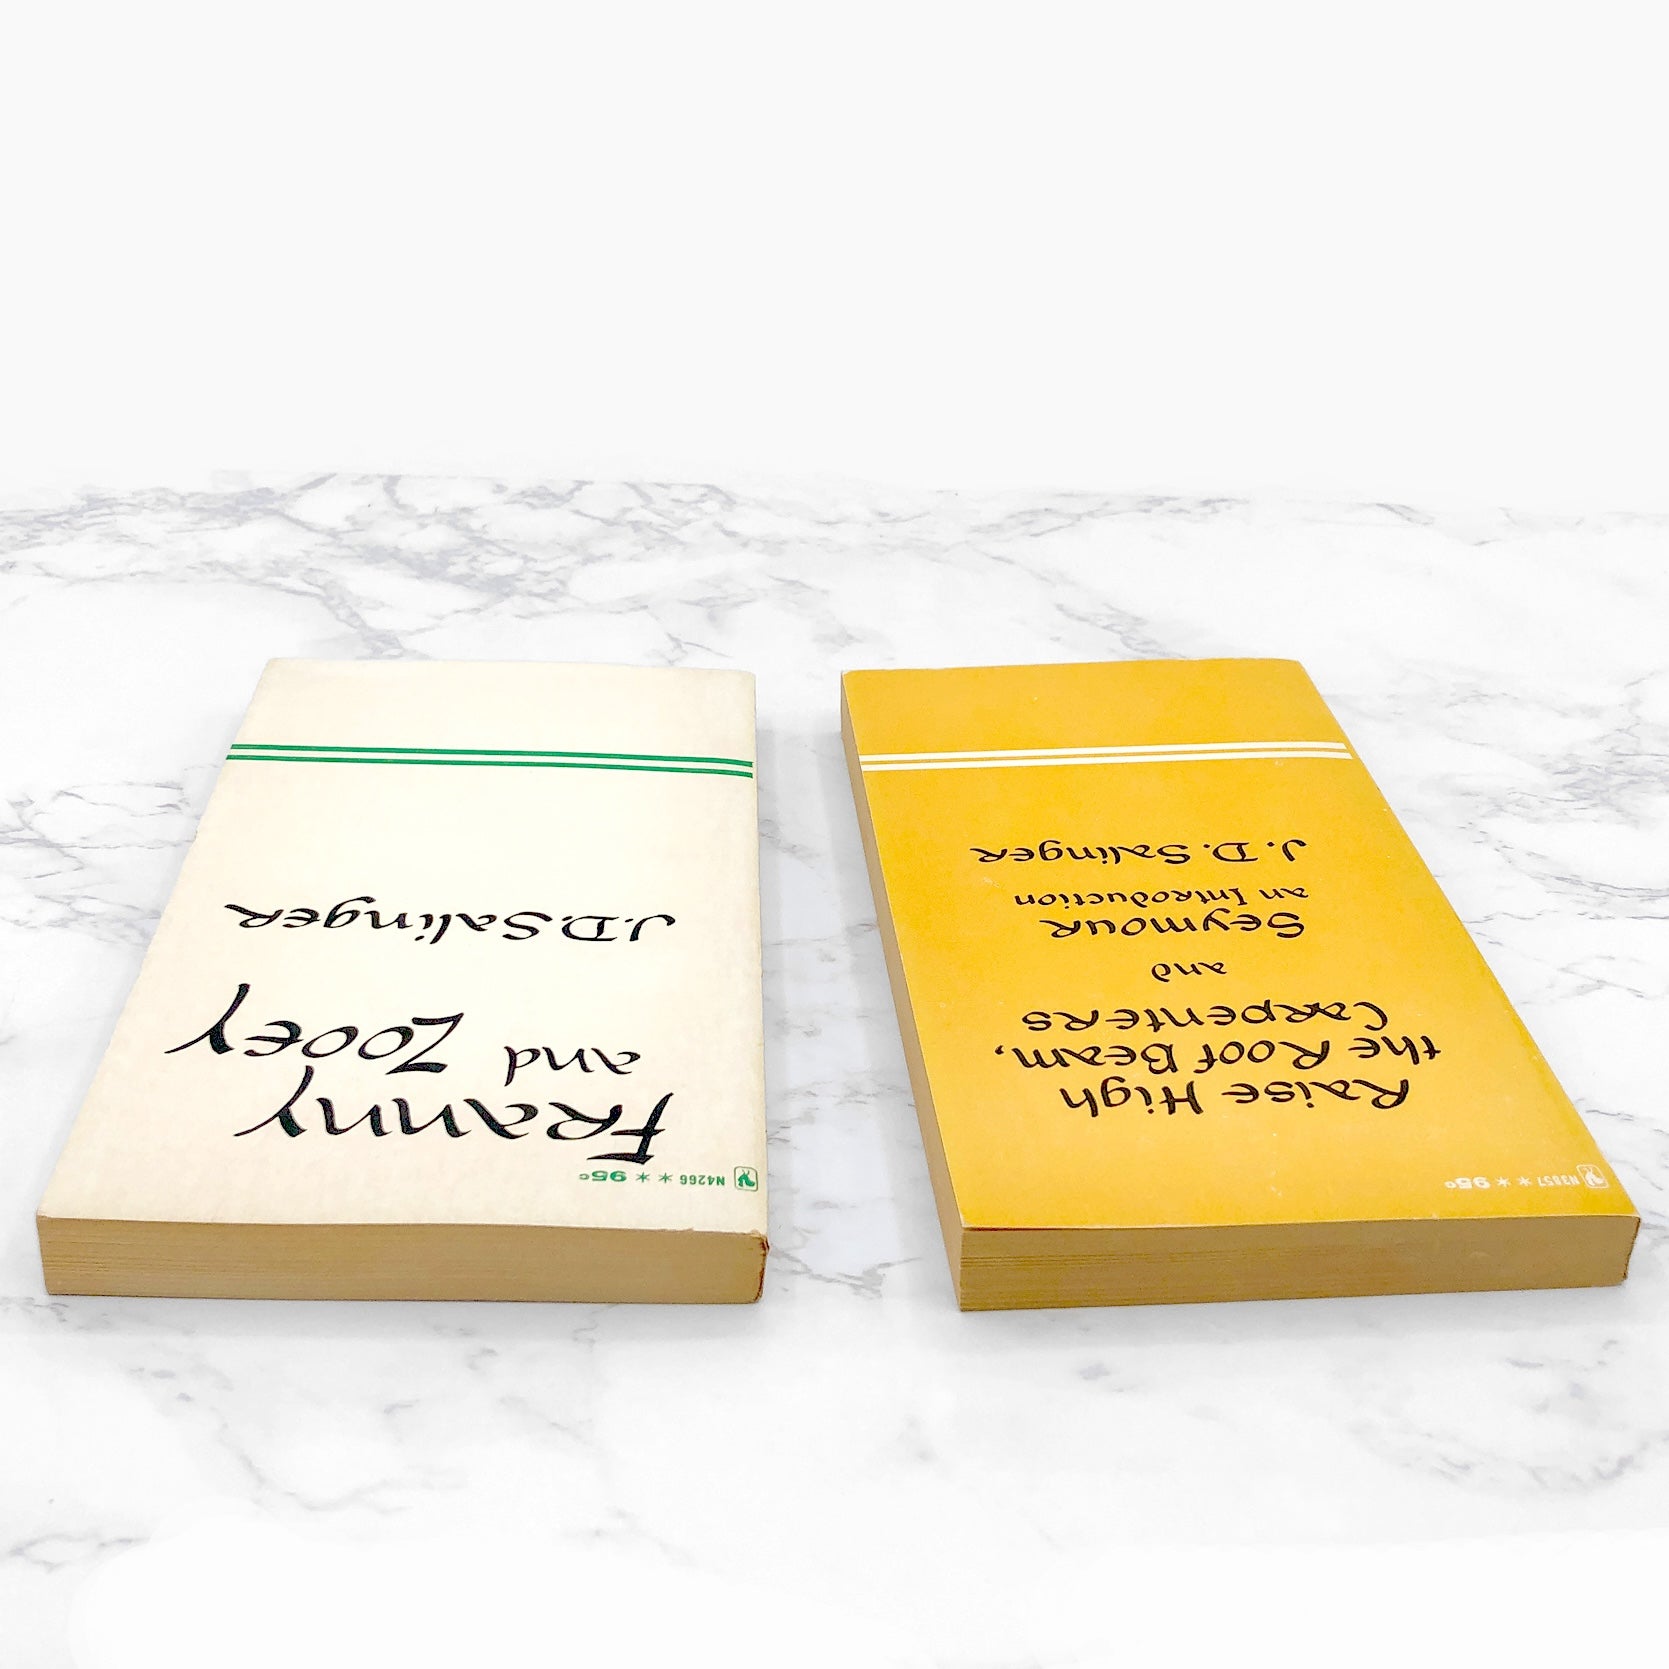 N4266 ** 95c
Franny
and Zooey
J.D. Salinger
N3857 ** 95c
Raise High
the Roof Beam,
Carpenters
and
Seymour
an Introduction
J. D. Salinger